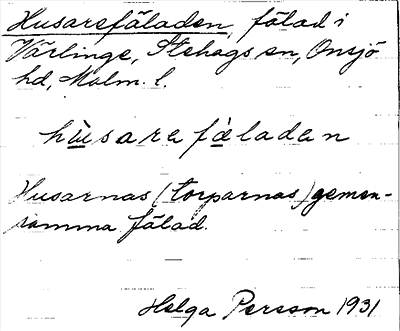 Husarefäladen, fälad i
Värlinge, Stehags sn, Onsjö
hd, Malm. l.
hùsarefæ̀laden
Husarnas (torparnas) gemen-
samma fälad.
Helga Persson 1931